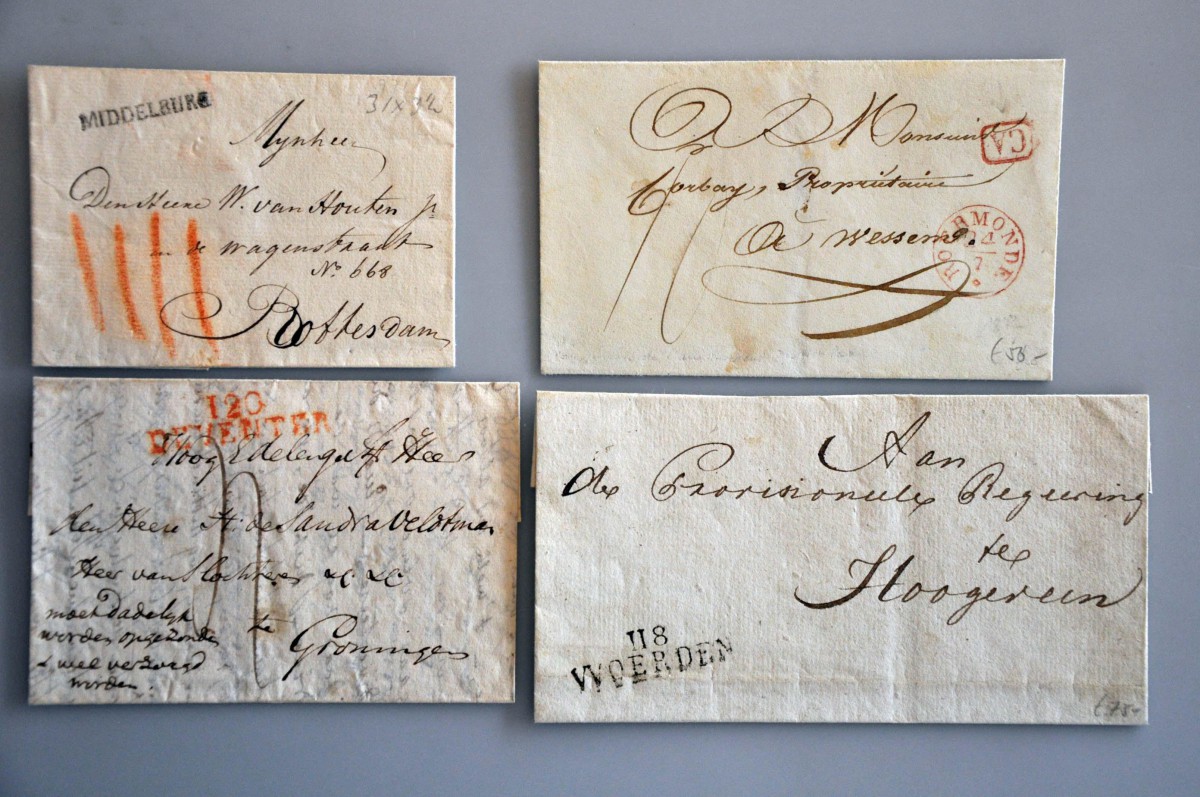 MIDDELBURG
Mynheer
Den Heere W. van Houten Jr
in de wagenstraat
No. 668
Rotterdam
A Monsieur
CA
Corbay, Propriétaire
A Wessem.
ROERMONDE
24
7
€ 50.-
120
DEVENTER
Hoog Edelengestr. Heer
den Heere H. de Sandra Veldtman
Heer van Slochteren &c. &c.
moet dadelyk
worden opgezonden
& wel verzorgd
worden.
te
Groningen
Aan
de Provisioneele Regeering
te
Hoogeveen
118
WOERDEN
€ 75.-